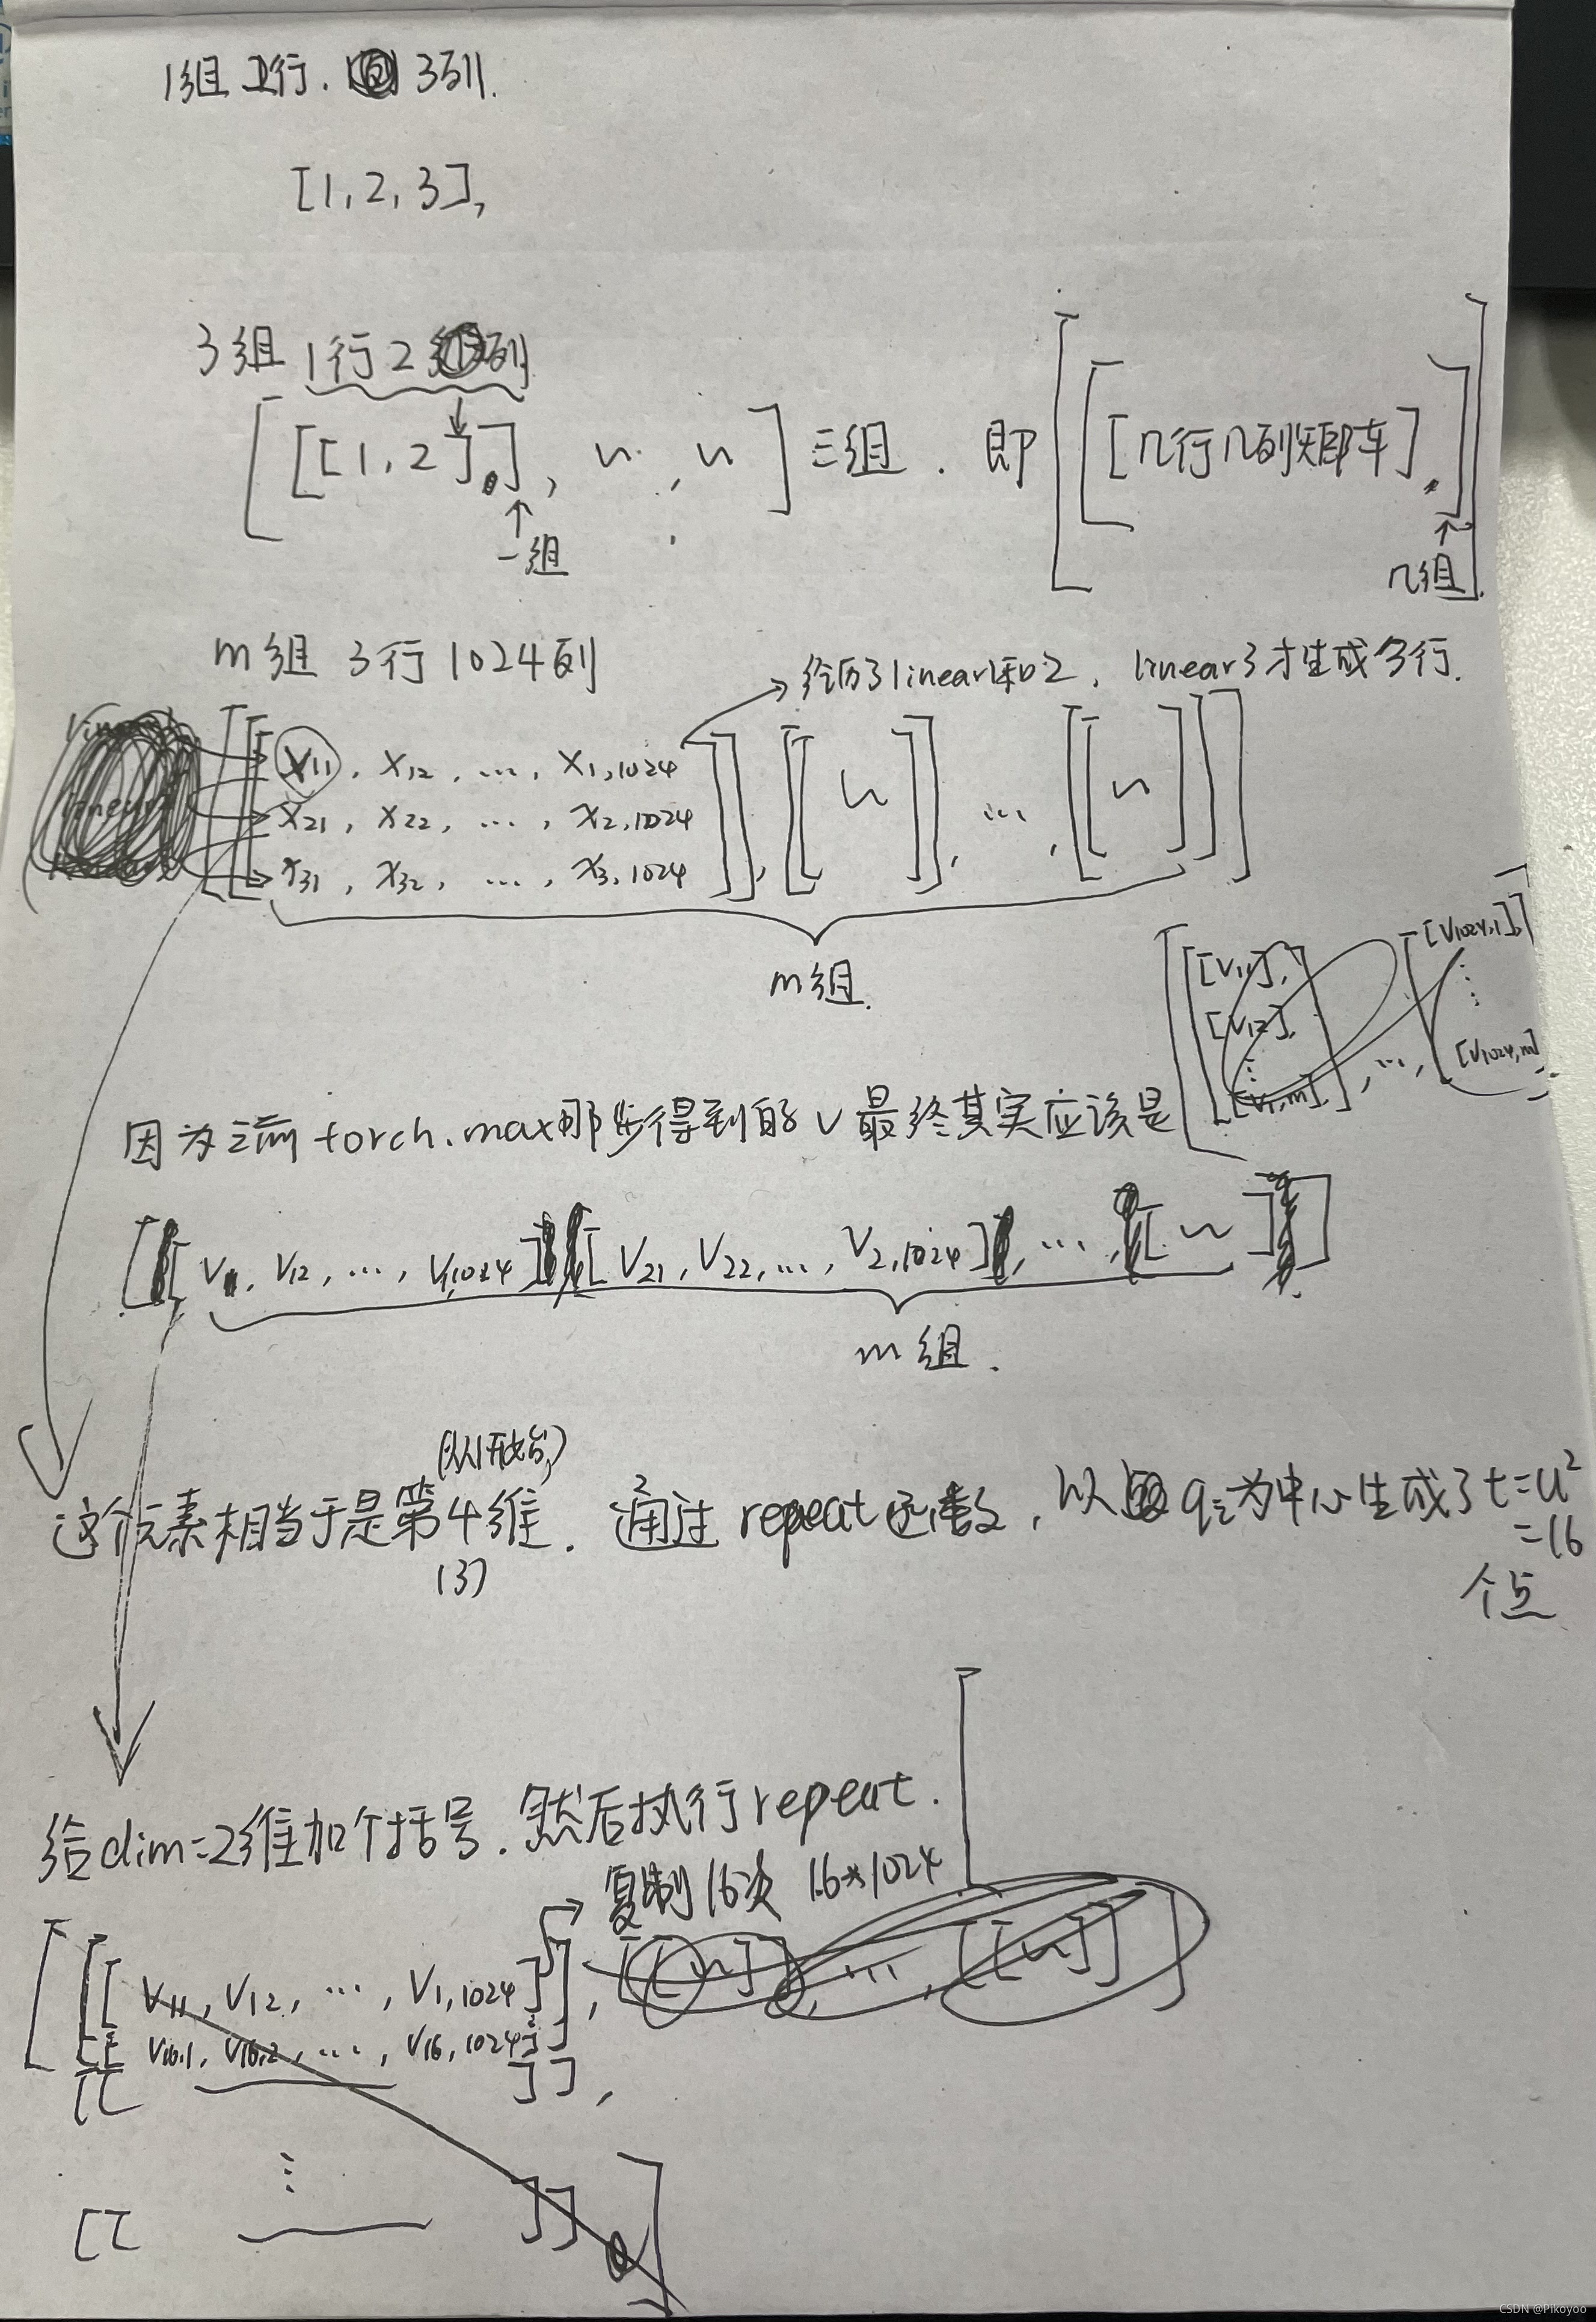 1组 1行. 3列.
[1, 2, 3],
3组 1行2列
[ [[1, 2],], 〃, 〃 ] 三组. 即 [ [ [几行几列矩阵], ] ]
↑
一组
↑
几组.
m组 3行1024列
→ 经历了linear1和2, linear3才生成多行.
[[[ x11, x12, ..., x1,1024
x21, x22, ..., x2,1024
x31, x32, ..., x3,1024 ]], [[ 〃 ]], ..., [[ 〃 ]]]
m组.
[[[v11],
[v12],
⋮
[v1,m]], ..., [[v1024,1],
⋮
[v1024,m]
因为之前torch.max那步得到的v最终其实应该是
[[ v11, v12, ..., v1,1024], [v21, v22, ..., v2,1024], ..., [ 〃 ]]
m组.
(从1开始)
这个元素相当于是第4维. 通过repeat函数, 以 qi为中心生成了t=u²
(3)
=16
个点
给dim=2维加个括号. 然后执行repeat.
→ 复制16次 16*1024
[ [[ v11, v12, ..., v1,1024]], [[〃]], ..., [[〃]] ]
[ v16,1, v16,2, ..., v16,1024]
[[ ]],
⋮
[[ ]] ]
CSDN @Pikoyoo